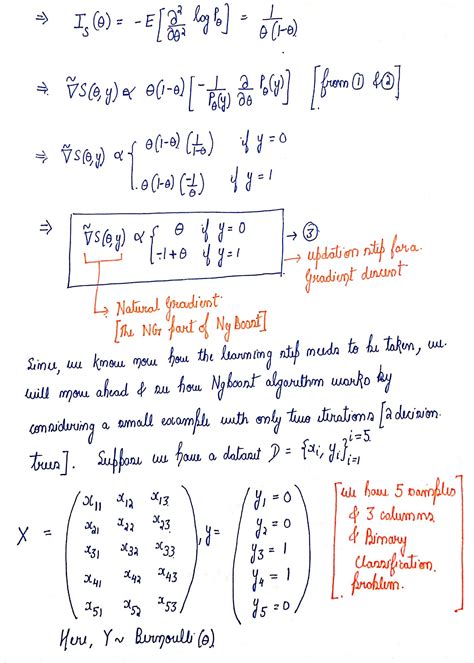 ⇒ I_S(θ) = -E[∂²/∂θ² log P_θ] = 1/θ(1-θ)
⇒ ∇̃S(θ,y) ∝ θ(1-θ) [-1/P_θ(y) ∂/∂θ P_θ(y)] [from ① & ②]
⇒ ∇̃S(θ,y) ∝ { θ(1-θ) (1/1-θ) if y = 0
θ(1-θ) (-1/θ) if y = 1
⇒ ∇̃S(θ,y) ∝ { θ if y = 0
-1+θ if y = 1
→ ③
→ updation step for a
Gradient descent
↳ Natural Gradient
[The NG part of NgBoost]
Since, we know now how the learning step needs to be taken, we
will move ahead & see how Ngboost algorithm works by
considering a small example with only two itrations [2 decision
trees]. Suppose we have a dataset D = {x_i, y_i}_{i=1}^{i=5}
X = ( x_11 x_12 x_13
x_21 x_22 x_23
x_31 x_32 x_33
x_41 x_42 x_43
x_51 x_52 x_53 )
, y = ( y_1 = 0
y_2 = 0
y_3 = 1
y_4 = 1
y_5 = 0 )
[we have 5 samples
& 3 columns
& Binary
classification
problem.]
Here, Y ~ Bernoulli(θ)